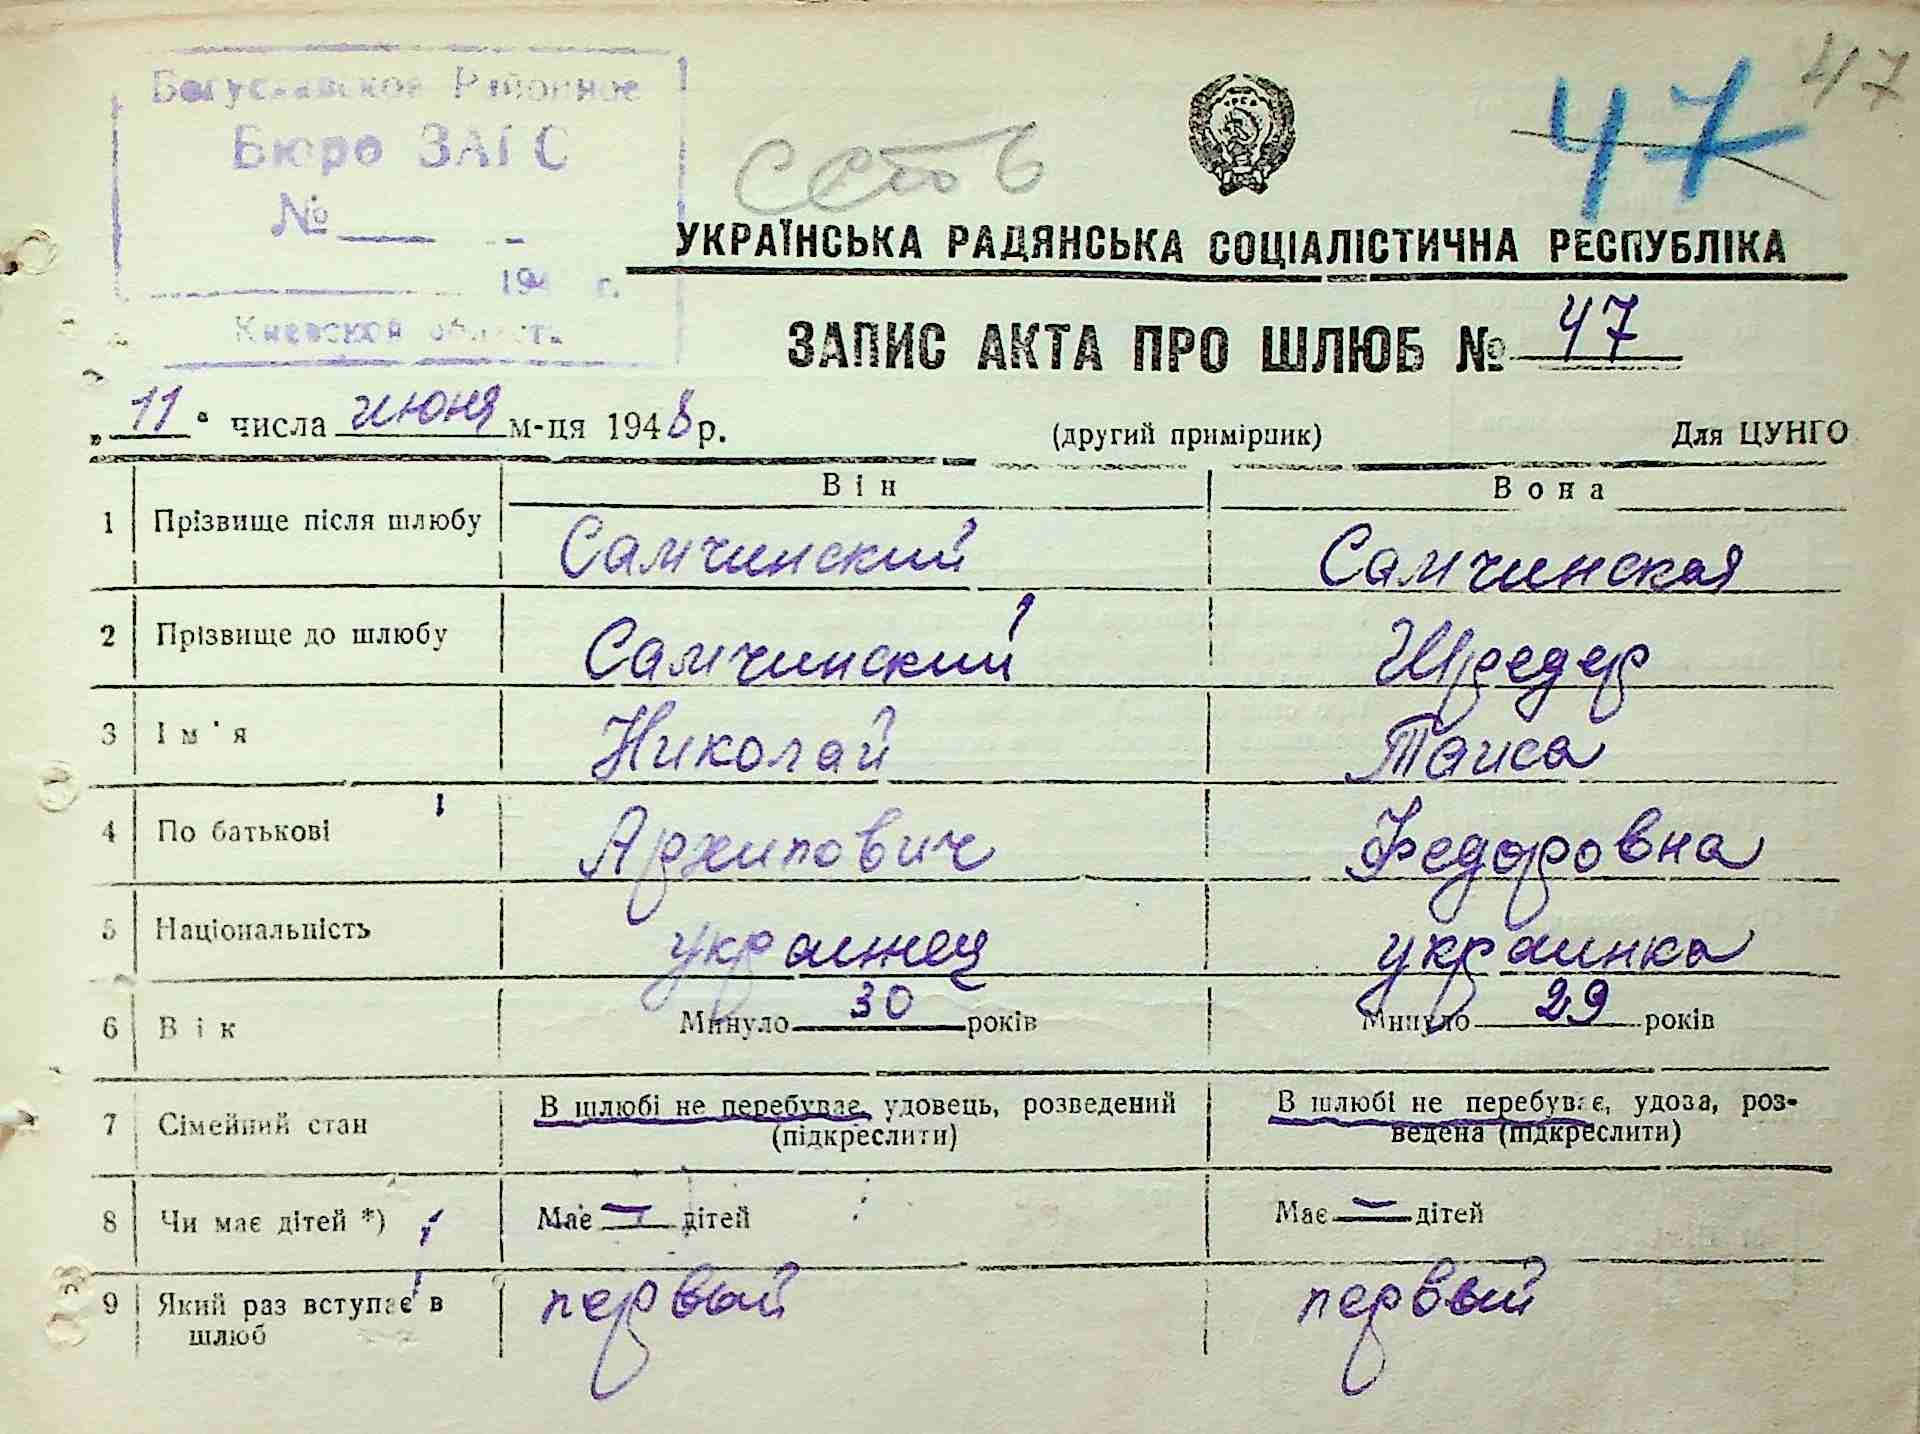 47
47
Богуславское Районное
Бюро ЗАГС
№
194 г.
Киевской области
УКРАЇНСЬКА РАДЯНСЬКА СОЦІАЛІСТИЧНА РЕСПУБЛІКА
ЗАПИС АКТА ПРО ШЛЮБ № 47
„11“ числа июня м-ця 1948 р. (другий примірник) Для ЦУНГО
Він Вона
1 Прізвище після шлюбу Самчинский Самчинская
2 Прізвище до шлюбу Самчинский Шредер
3 Ім'я Николай Таиса
4 По батькові Архипович Федоровна
5 Національність украинец украинка
6 Вік Минуло 30 років Минуло 29 років
7 Сімейний стан В шлюбі не перебуває, удовець, розведений (підкреслити) В шлюбі не перебуває, удова, роз-
ведена (підкреслити)
8 Чи має дітей *) Має — дітей Має — дітей
9 Який раз вступає в первый первый
шлюб